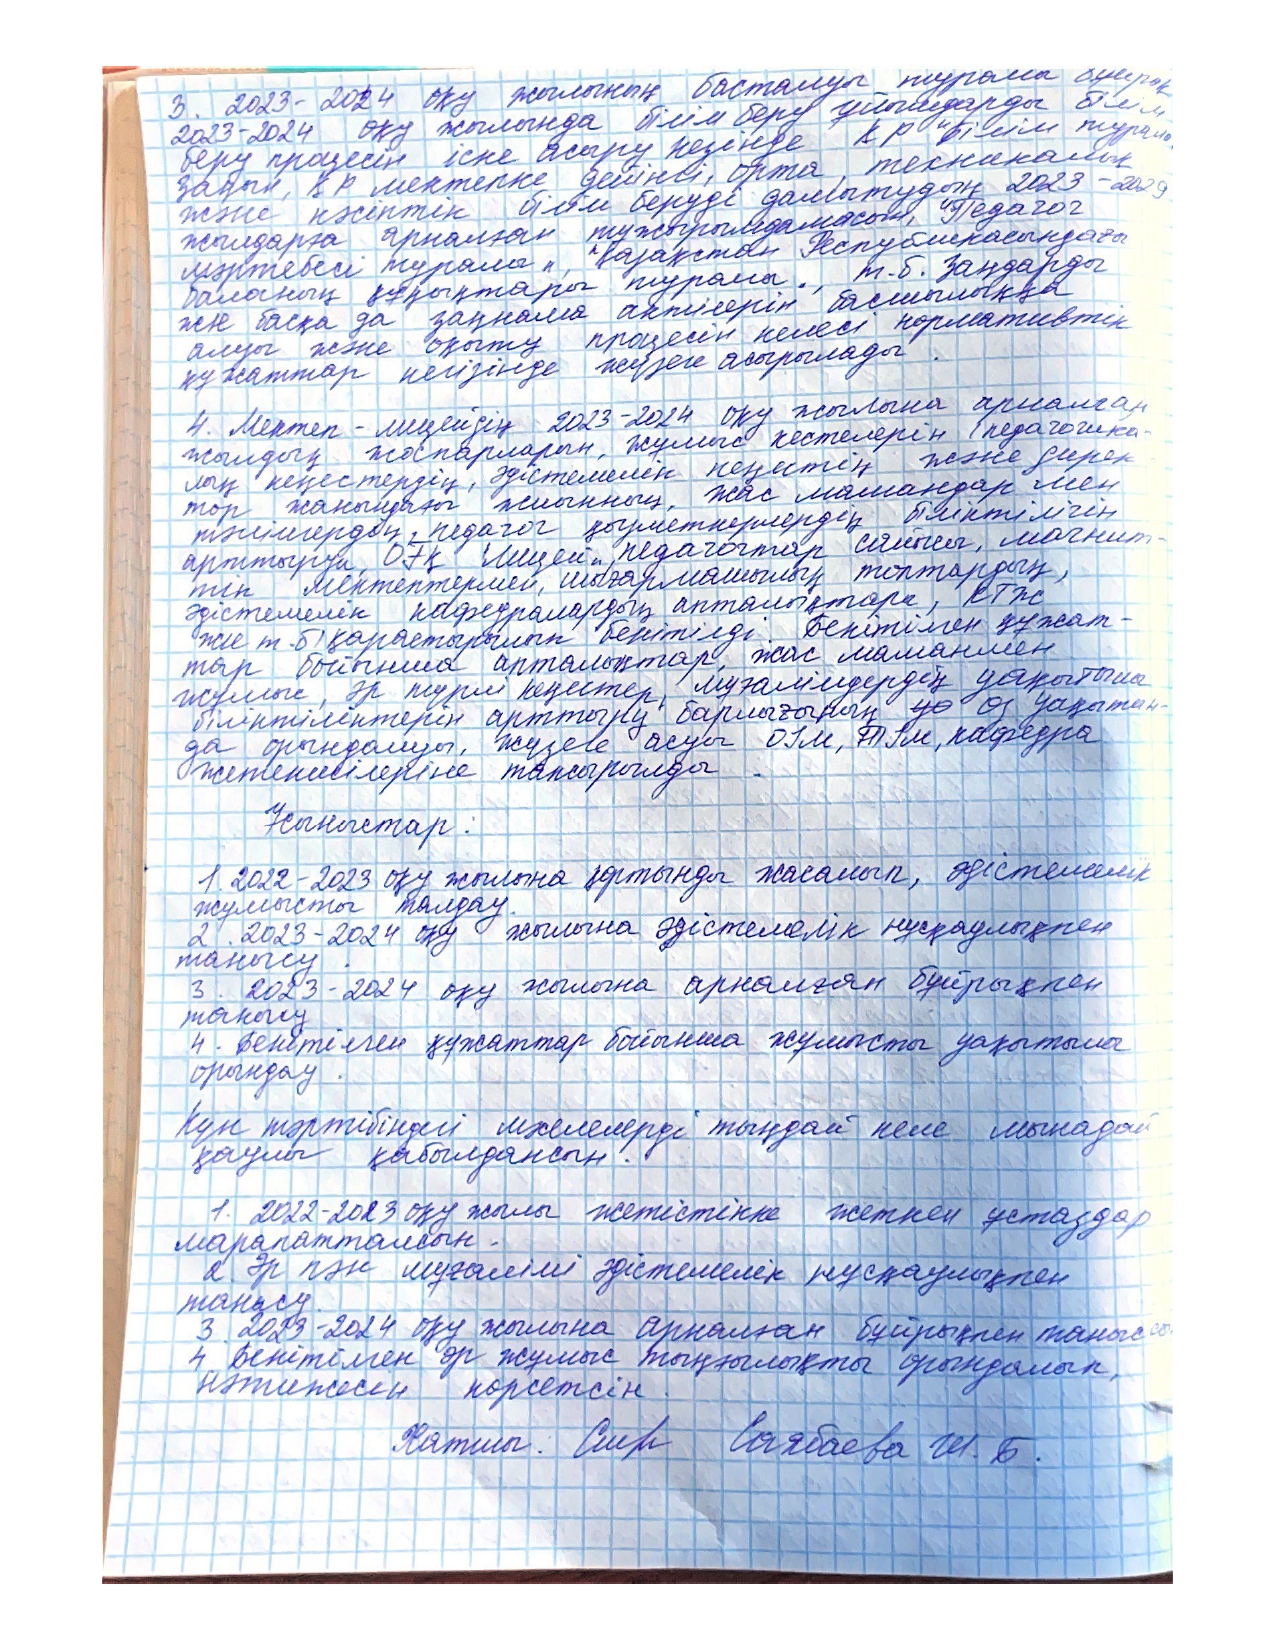 3. 2023-2024 оқу жылының басталуы туралы бұйрық
2023-2024 оқу жылында білім беру ұйымдарды білім
беру процесін іске асыру кезінде ҚР "Білім туралы
заңын, ҚР мектепке дейінгі, орта, техникалық
және кәсіптік білім беруді дамытудың 2023-2029
жылдарға арналған тұжырымдамасын, "Педагог
мәртебесі туралы", "Қазақстан Республикасындағы
баланың құқықтары туралы", т.б. Заңдарды
және басқа да заңнама актілерін басшылыққа
алуы және оқыту процесін келесі нормативтік
құжаттар негізінде жүзеге асырылады.
4. Мектеп-лицейдің 2023-2024 оқу жылына арналған
жылдық жоспарларын, жұмыс кестелерін (педагогика-
лық кеңестердің, әдістемелік кеңестің және дирек-
тор жанындағы жиынның, жас мамандар мен
тәлімгердің, педагог қызметкерлердің біліктілігін
арттыруы, ОҒҚ "Лицей", педагогтар сайысы, магнит-
тік мектептермен, шығармашылық топтардың,
әдістемелік кафедралардың апталықтары, КТЖ
және т.б) қарастырылып бекітілді. Бекітілген құжат-
тар бойынша апталықтар, жас маманмен
жұмыс, әр түрлі кеңестер, мұғалімдердің уақытылы
біліктіліктерін арттыру барлығының өз уақытын-
да орындалуы, жүзеге асуы кафедра
жетекшілеріне тапсырылды.
Ұсыныстар:
1. 2022-2023 оқу жылына қортынды жасалып, әдістемелік
жұмысты талдау.
2. 2023-2024 оқу жылына әдістемелік нұсқаулықпен
танысу.
3. 2023-2024 оқу жылына арналған бұйрықпен
танысу
4. Бекітілген құжаттар бойынша жұмысты уақытылы
орындау.
Күн тәртібіндегі мәселелерді тыңдай келе мынадай
қаулы қабылдансын.
1. 2022-2023 оқу жылы жетістікке жеткен ұстаздар
марапатталсын.
2. Әр пән мұғалімі әдістемелік нұсқаулықпен
танысу.
3. 2023-2024 оқу жылына арналған бұйрықпен таныссы
4. Бекітілген әр жұмыс тыңғылықты орындалып,
нәтижесін көрсетсін.
Хатшы: Саябаева Ж.Б.